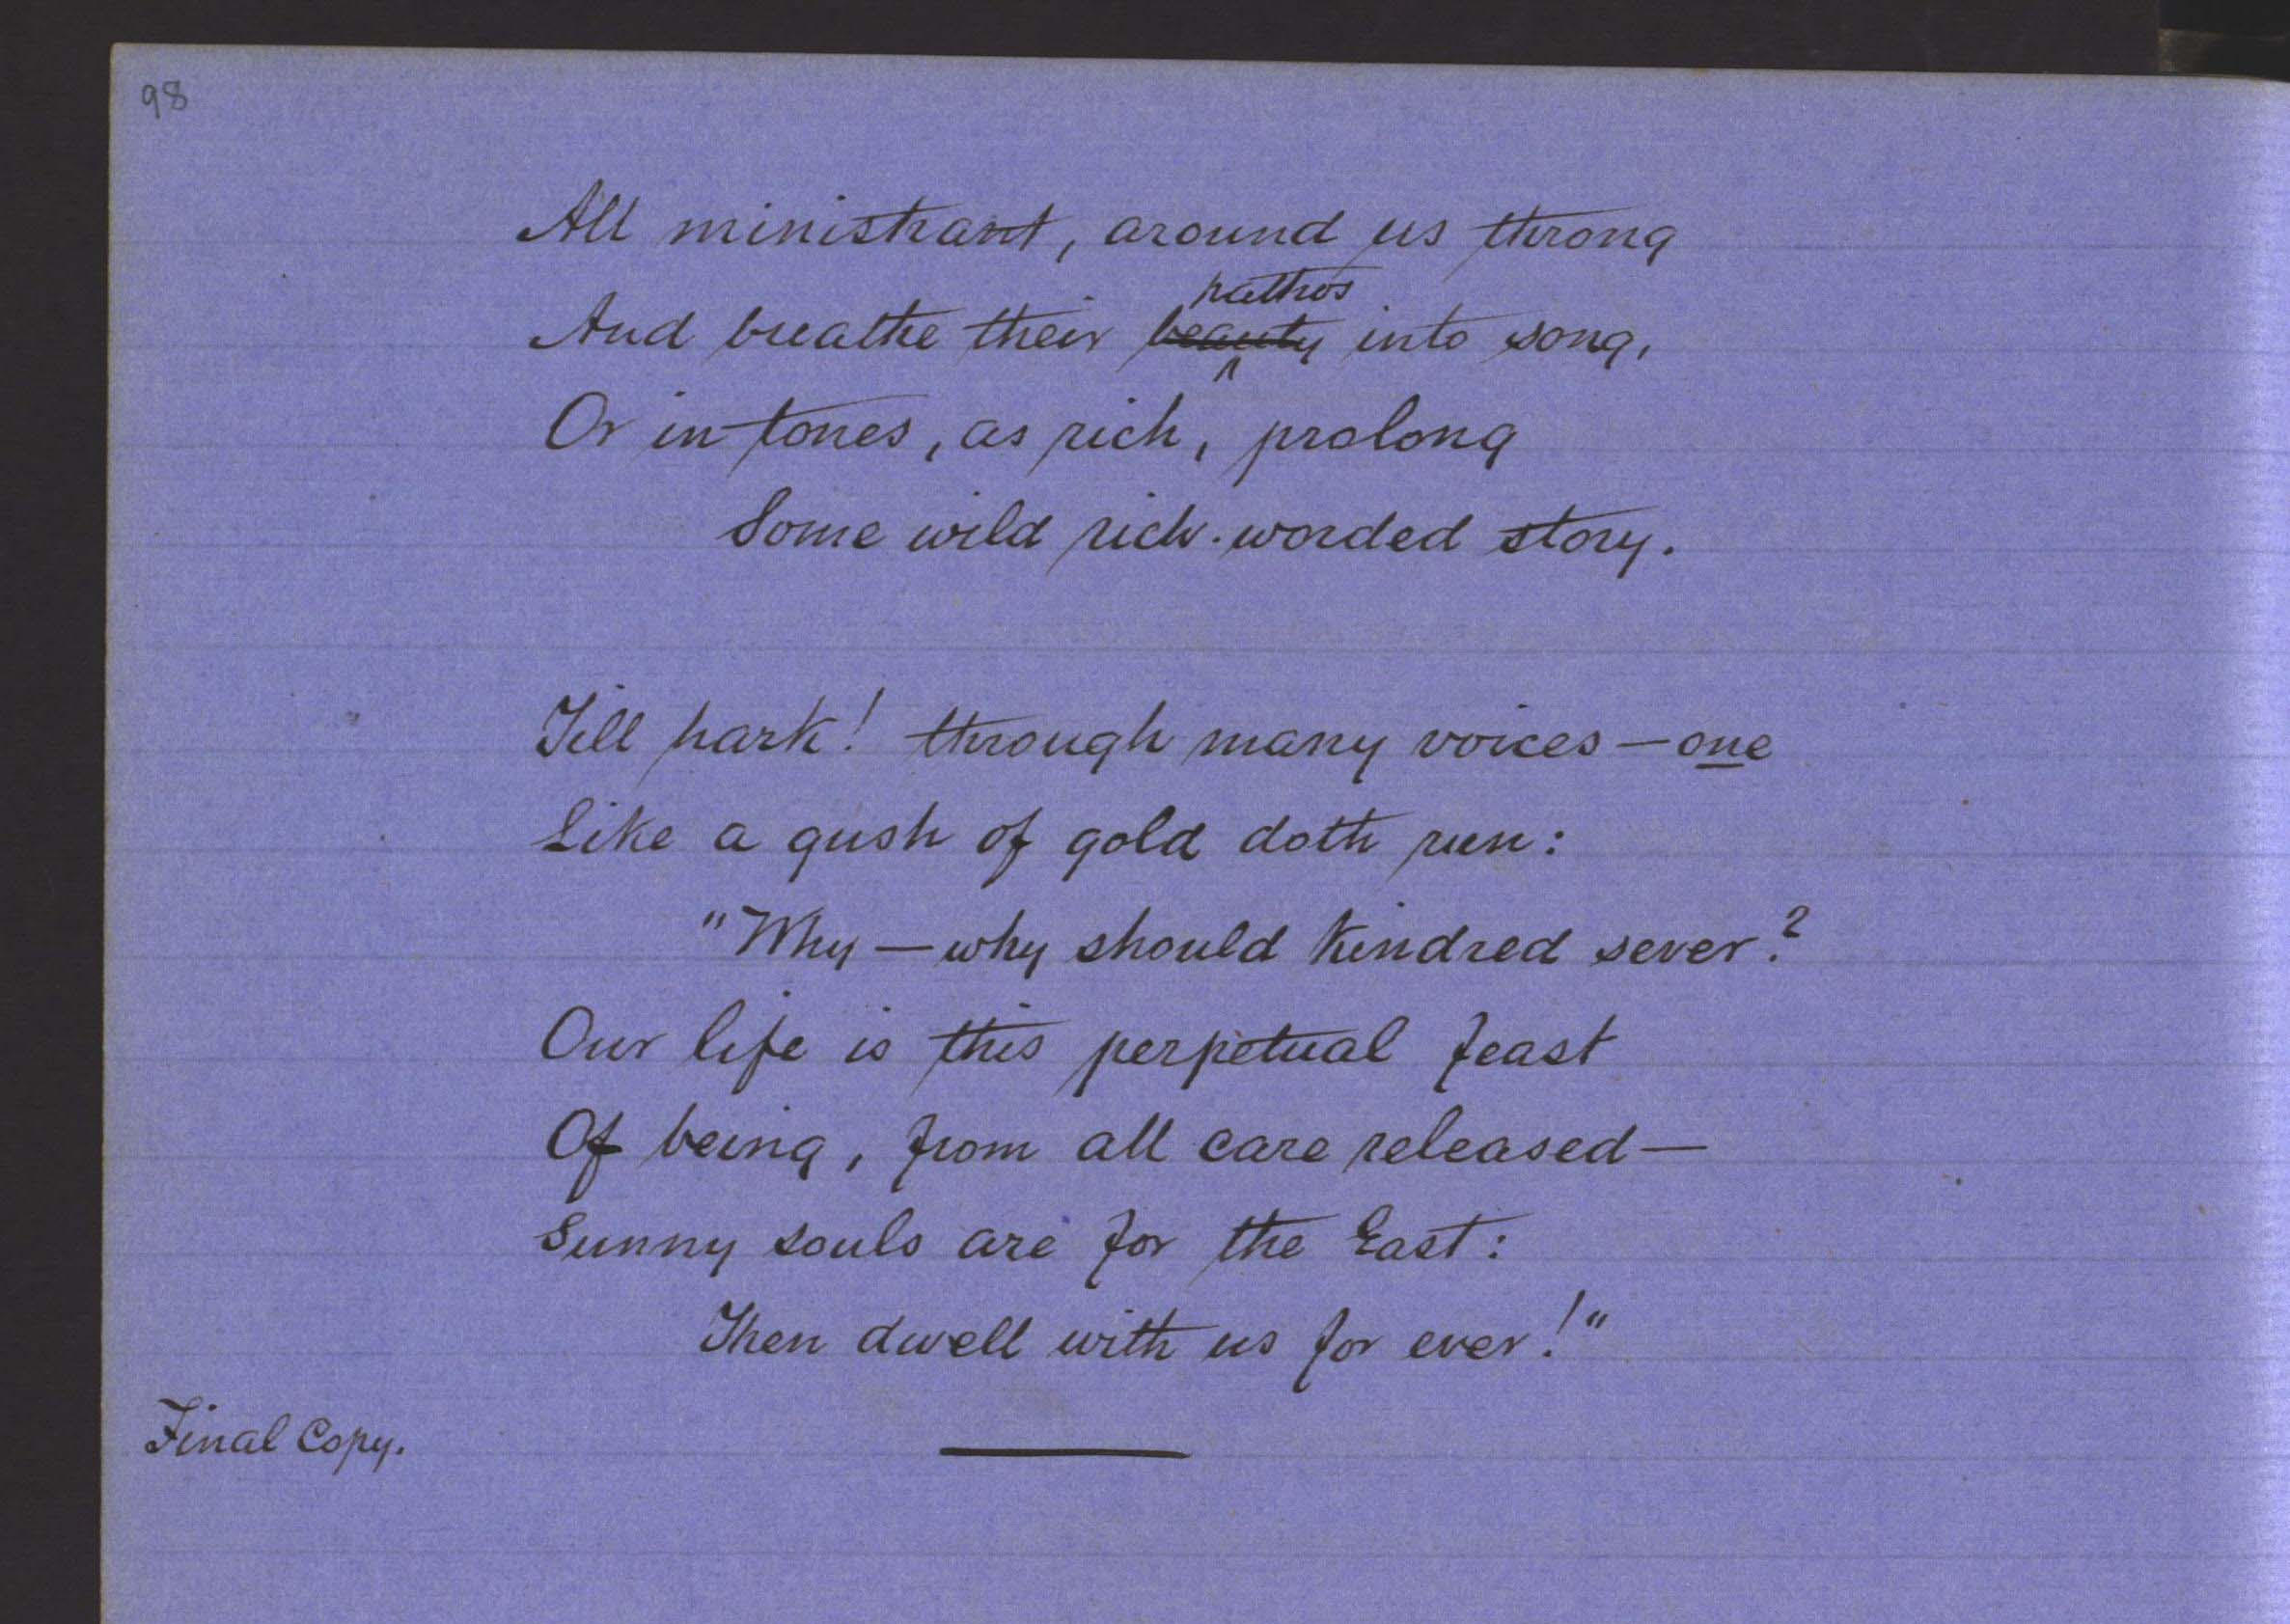 98
All ministrant, around us throng
pathos
And breathe their beauty into song,
Or in tones, as rich, prolong
Some wild rich-worded story.
Till hark! through many voices — one
Like a gush of gold doth run:
"Why — why should kindred sever?
Our life is this perpetual feast
Of being, from all care released —
Sunny souls are for the East:
Then dwell with us for ever!"
Final Copy.